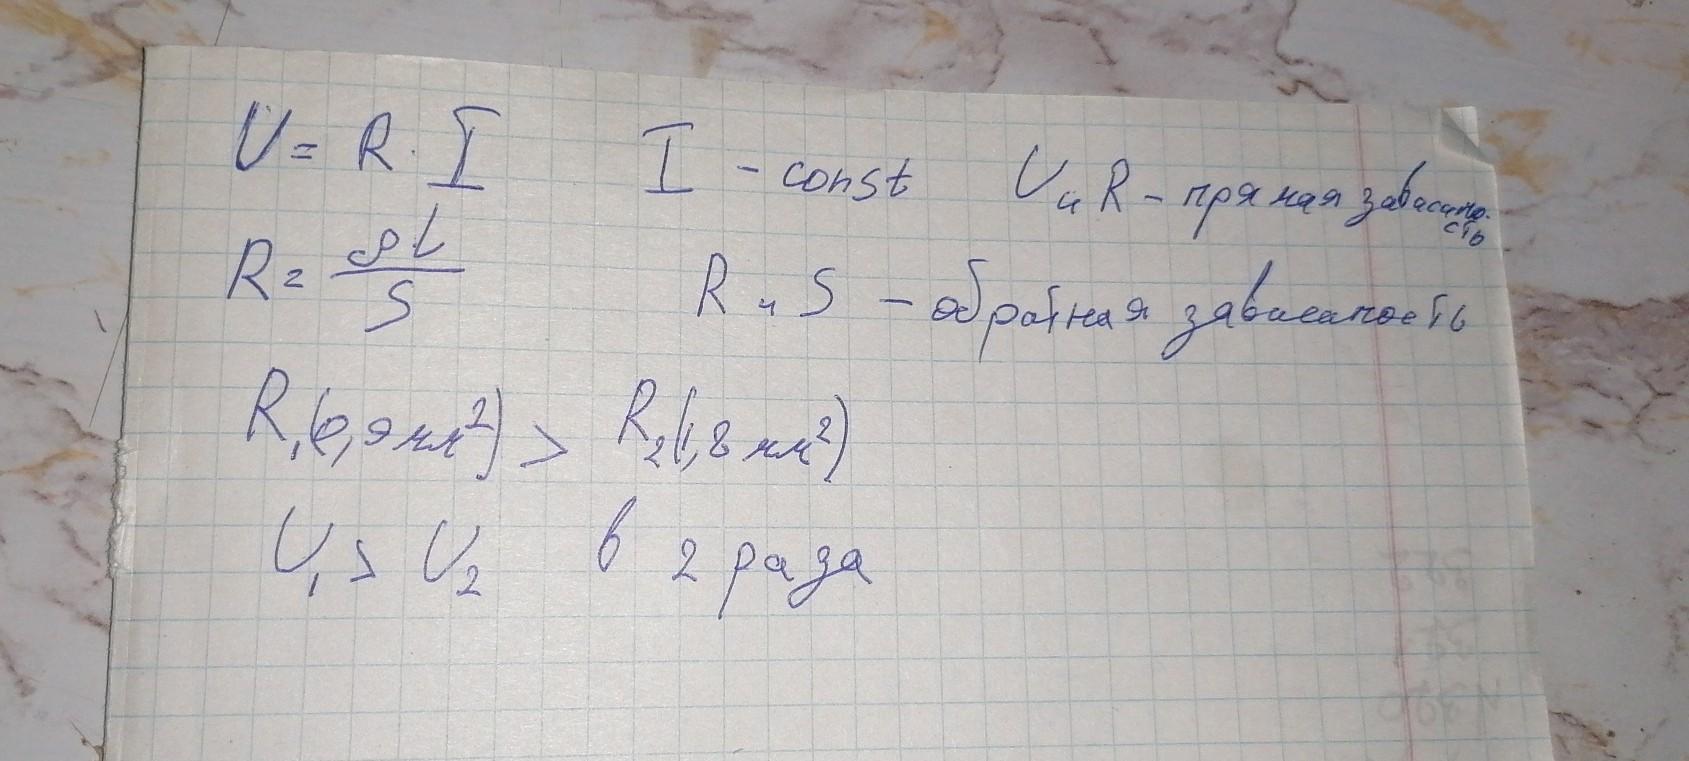 U = R · I    I - const    U и R - прямая зависимость
R = ρl/S    R и S - обратная зависимость
R₁(0,9 мм²) > R₂(1,8 мм²)
U₁ > U₂    в 2 раза